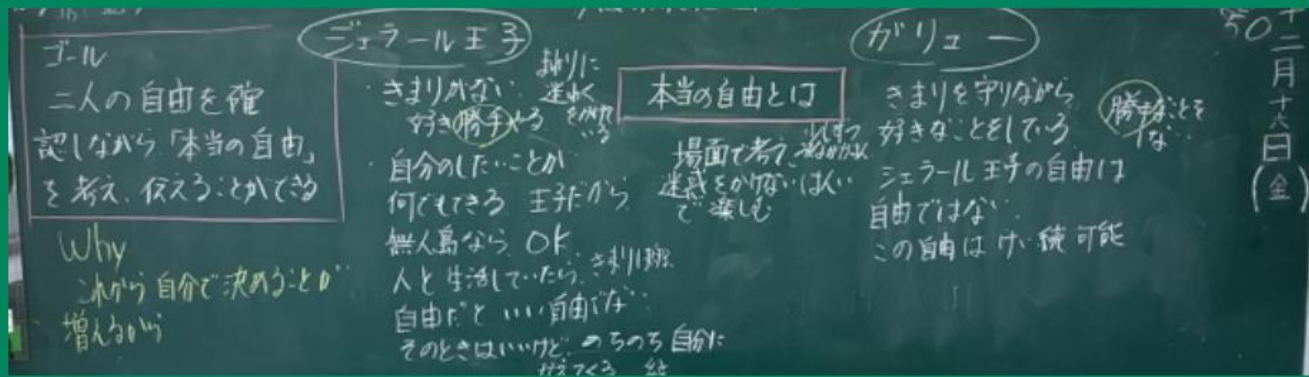 十二月十六日(金)
50
ゴール
二人の自由を確
認しながら「本当の自由」
を考え、伝えることができる
Why
これから自分で決めることが
増えるから
ジェラール王子
・きまりがない
好き勝手やる
まわりに
迷わく
・自分のしたいことが
何でもできる 王子だから
無人島なら、OK
人と生活していたら、きまりは
自由だと いい自由でない
そのときはいいけど、のちのち自分に
かえってくる
本当の自由とは
場面で考えて
迷惑をかけないはんい
で楽しむ
ガリュー
きまりを守りながら
好きなことをしている
勝手なことを
ない
ジェラール王子の自由は
自由ではない
この自由は けい続可能